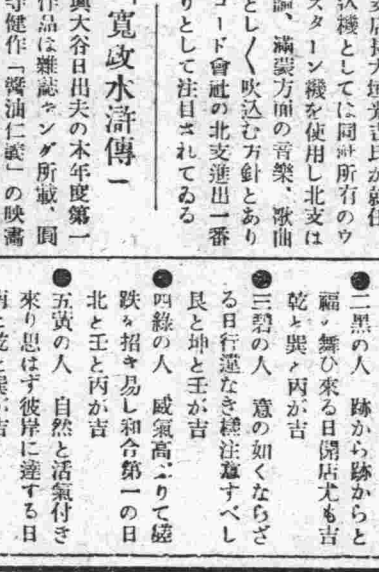 込機としては同社所有のウ
スターン機を使用し北支は
論、滿蒙方面の音樂、歌曲
とし〱吹込む方針とあり
コード會社の北支進出一番
りとして注目されてゐる
「寬政水滸傳」
興大谷日出夫の本年度第一
作品は雜誌キング所載、圓
寺健作「醬油仁義」の映畵
●二黑の人　跡から跡からと
福の舞ひ來る日開店尤も吉
乾と巽と丙が吉
●三碧の人　意の如くならざ
る日行違なき樣注意すべし
艮と坤と壬が吉
●四綠の人　威氣高ぶりて蹉
跌を招き易し和合第一の日
北と壬と丙が吉
●五黃の人　自然と活氣付き
來り思はず彼岸に達する日